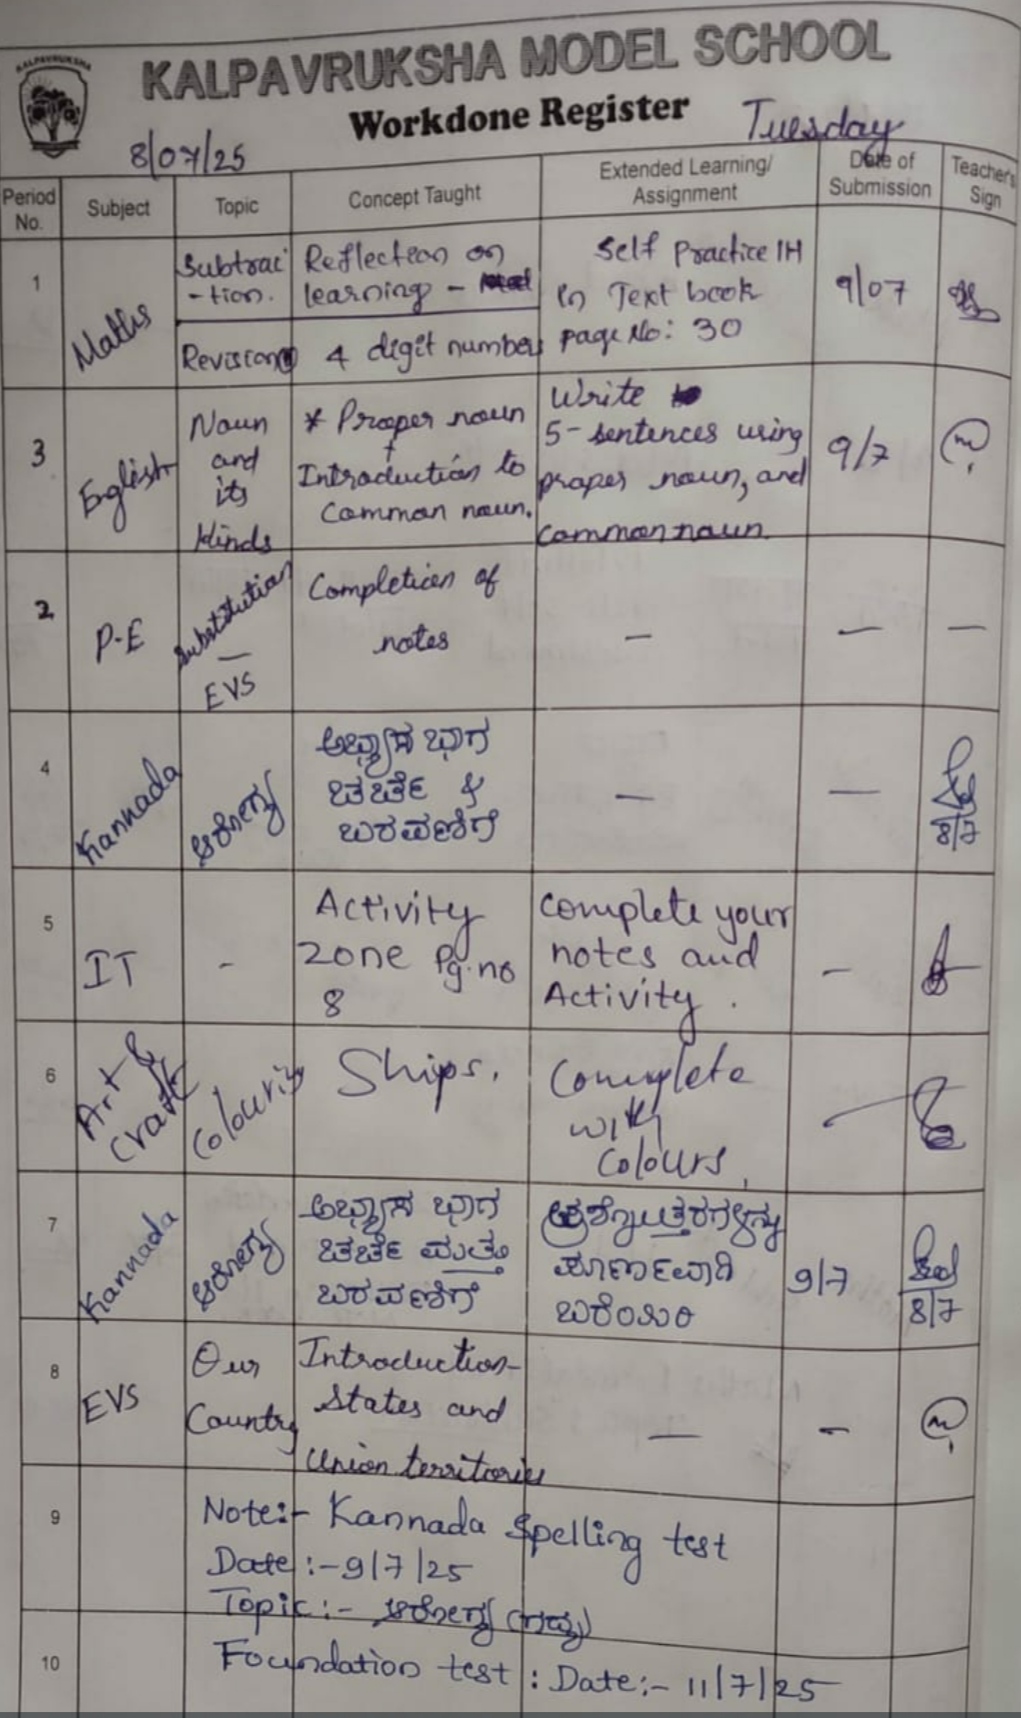 KALPAVRUKSHA
KALPAVRUKSHA MODEL SCHOOL
Workdone Register
8/07/25 Tuesday
Period No. Subject Topic Concept Taught Extended Learning/ Assignment Date of Submission Teacher's Sign
1 Maths
Subtrac
-tion.
Reflection on
learning -
Self Practice 1H
in Text book
page No: 30
9/07
Revision 4 digit numbers
3 Eglish
Noun
and
its
kinds
* Proper noun
+
Introduction to
Common noun.
Write
5-sentences using
proper noun, and
common noun.
9/7
2 P.E
Substitution
—
EVS
Completion of
notes
— — —
4 Kannada ಆರೋಗ್ಯ
ಅಭ್ಯಾಸ ಭಾಗ
ಚರ್ಚೆ &
ಬರವಣಿಗೆ
— —
8/7
5 IT -
Activity
zone Pg.no
8
Complete your
notes and
Activity.
-
6 Art &
Craft
Colouring
Ships.
Complete
with
colours.
7 Kannada ಆರೋಗ್ಯ
ಅಭ್ಯಾಸ ಭಾಗ
ಚರ್ಚೆ ಮತ್ತು
ಬರವಣಿಗೆ
ಪ್ರಶ್ನೋತ್ತರಗಳನ್ನು
ಪೂರ್ಣವಾಗಿ
ಬರೆಯಿರಿ
9/7
8/7
8 EVS
Our
Country
Introduction-
States and
Union territories
— -
9 Note:- Kannada Spelling test
Date:-9/7/25
Topic:- ಆರೋಗ್ಯ (ಗದ್ಯ)
10 Foundation test: Date:- 11/7/25